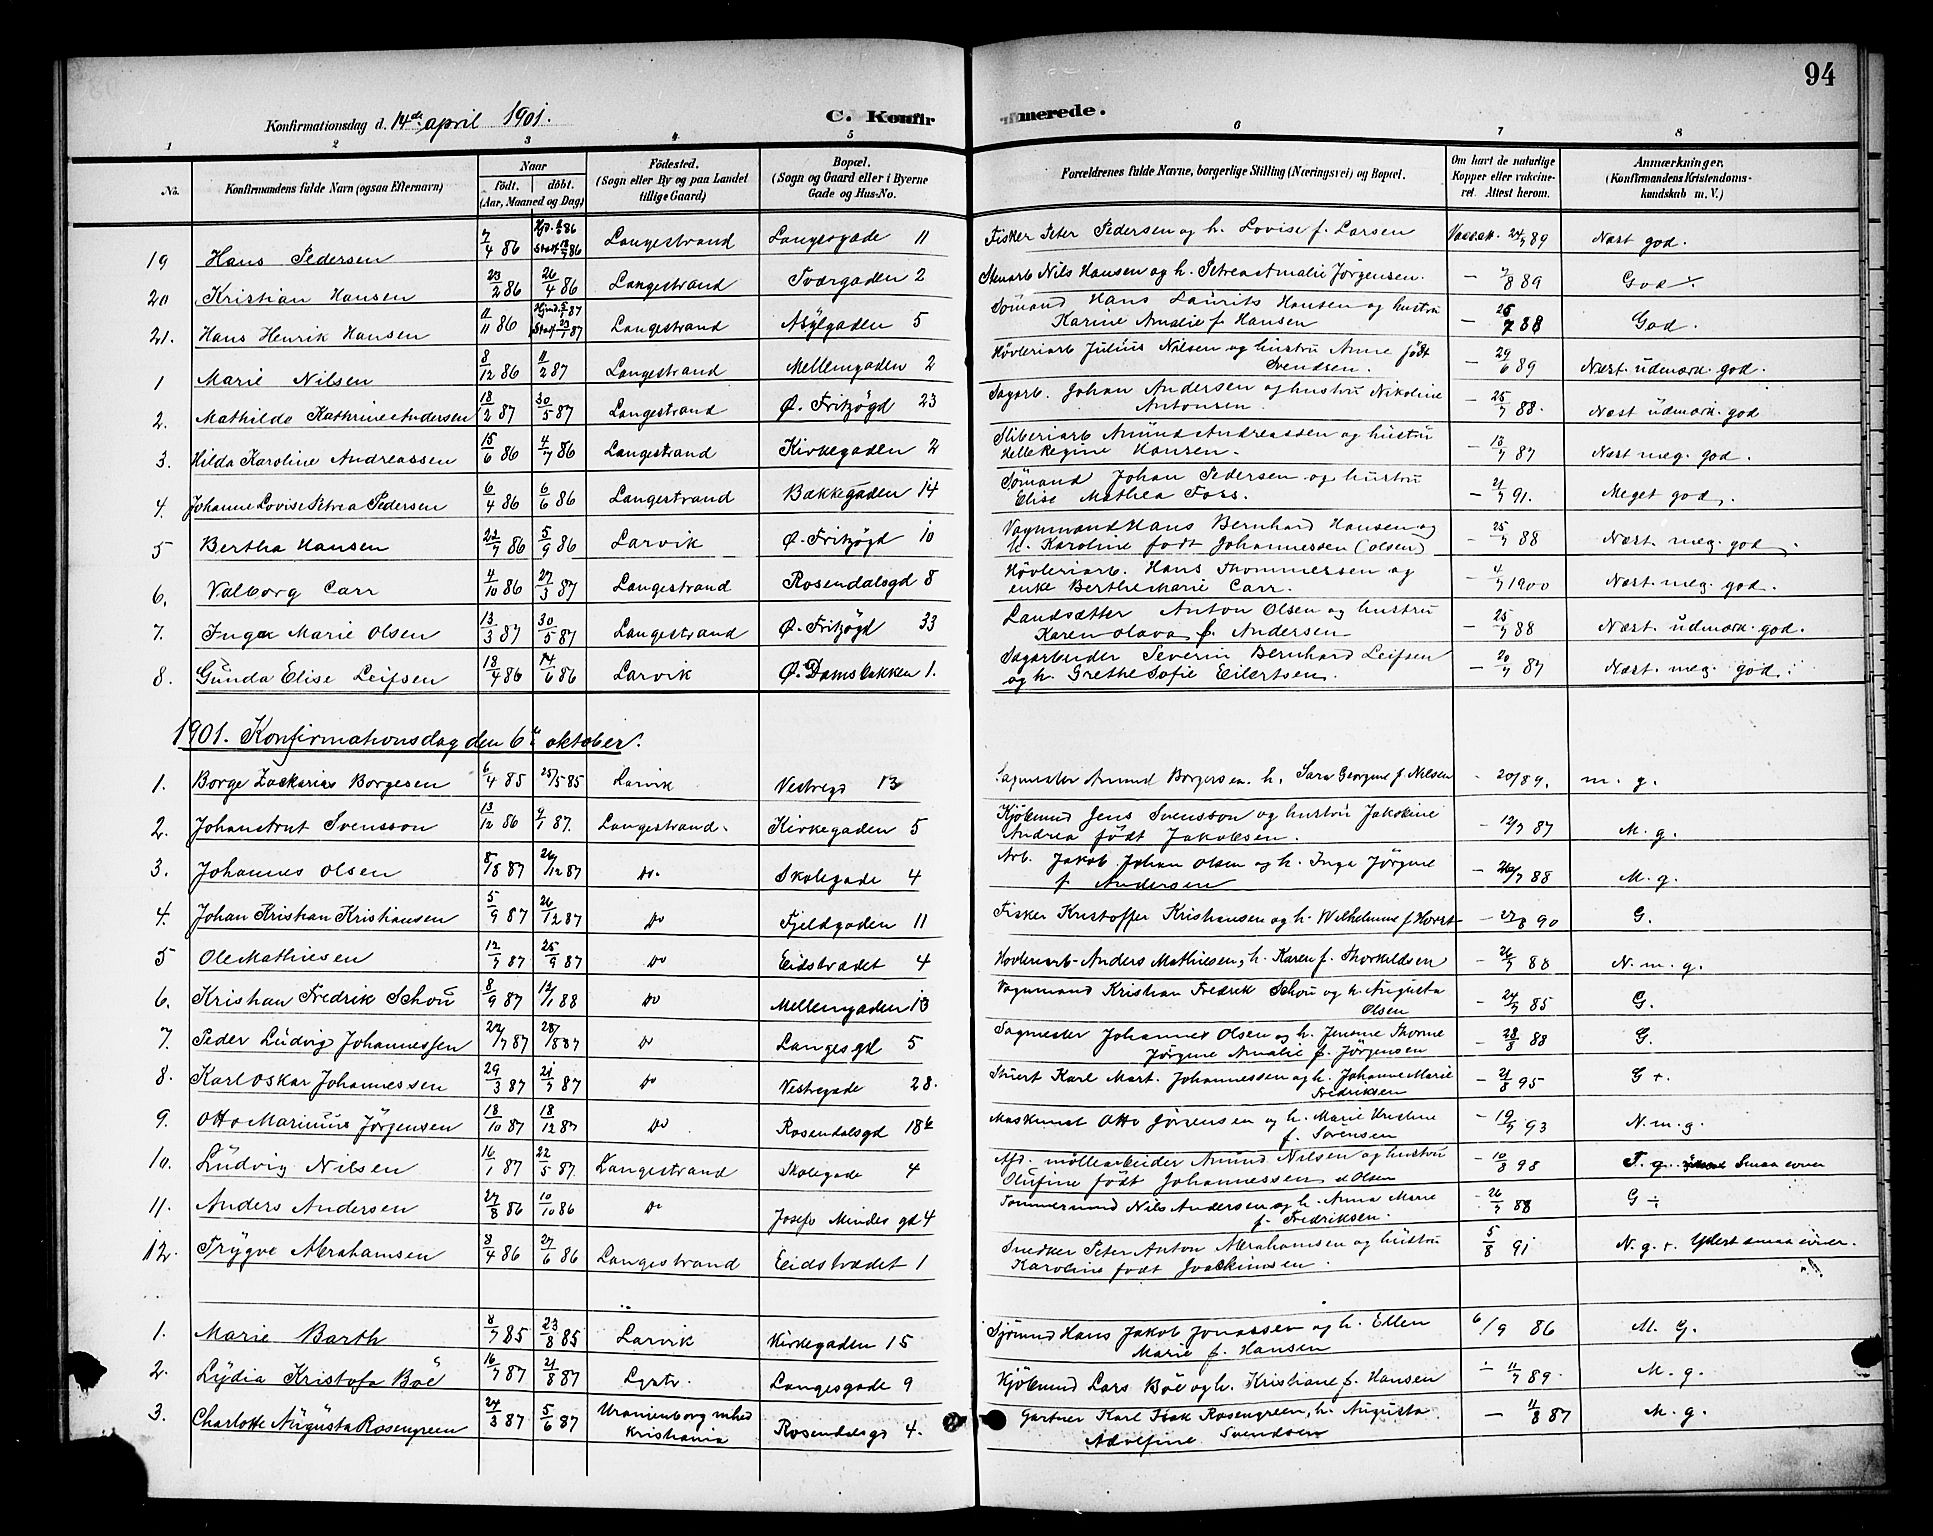 94
Konfirmationsdag d. 14de april 1901.
C. Konfirmerede.
1 2 3 4 5 6 7 8
No.
Konfirmandens fulde Navn (ogsaa Efternavn)
Naar
födt. döbt.
(Aar, Maaned og Dag)
Födested.
(Sogn eller By og paa Landet
tillige Gaard)
Bopæl.
(Sogn og Gaard eller i Byerne
Gade og Hus-No.
Forældrenes fulde Navne, borgerlige Stilling (Næringsvei) og Bopæl.
Om havt de naturlige
Kopper eller vakcine-
ret. Attest herom.
Anmærkninger.
(Konfirmandens Kristendoms-
kundskab m. V.)
19 Hans Pedersen 7/4 86 Langestrand Langesgade 11 Fisker Peter Pedersen og h. Lovise f. Larsen 24/7 89 Næst god.
20 Kristian Hansen 23/2 86 26/4 86 Langestrand Tværgaden 2 Stenarb Nils Hansen og h. Petrea Amalie Jørgensen. - 7/8 89 God
21. Hans Henrik Hansen 11/11 86 Langestrand Asylgaden 5 Sømand Hans Laurits Hansen og hustru
Karine Amalie f. Hansen - 25/7 88 God.
1 Marie Nilsen 8/12 86 11/2 87 Langestrand Mellemgaden 2 Høvleriarb Julius Nilsen og hustru Anne født
Svendsen. - 29/6 89 Næst udmærk. god.
2. Mathilda Kathrine Andersen 18/2 87 30/5 87 Langestrand Ø. Fritzøgd 23 Sagarb. Johan Andersen og hustru Nikoline
Antonsen - 25/7 88. Næst udmærk. god
3. Hilda Karoline Andreassen 15/6 86 4/7 86 Langestrand Kirkegaden 2 Sliberiarb Amund Andreassen og hustru
Helle Regine Hansen. - 18/7 87 Næst meg. god.
4. Johanne Lovise Petrea Pedersen 6/4 86 6/6 86 Langestrand Bækkegaden 14 Sømand Johan Pedersen og hustru
Elise Mathea Foss. - 21/7 91. Meget god.
5 Bertha Hansen 22/7 86 5/9 86 Larvik Ø. Fritzøgd 10 Vognmand Hans Bernhard Hansen og
h. Karoline født Johannessen (Olsen) - 25/7 88 Næst. meg. god.
6. Valborg Carr 4/10 86 27/3 87 Langestrand Rosendalsgd 8 Høvleriarb. Hans Thommersen og
enke Berthe Marie Carr. - 4/7 1900 Næst. meg. god.
7. Inga Marie Olsen 13/3 87 30/5 87 Langestrand Ø. Fritzøgd 33 Landsætter Anton Olsen og hustru
Karen Olava f. Andersen - 25/7 88 Næst. udmærk. god.
8. Gunda Elise Leifsen 18/4 86 14/6 86 Larvik Ø. Damsbakken 1. Sagarbeider Severin Bernhard Leifsen
og h. Grethe Sofie Eilertsen. - 20/7 87 Næst. meg. god.
1901. Konfirmationsdag den 6te oktober.
1. Borge Zackarias Borgesen 6/4 85 25/5 85 Larvik Vestregd 13 Sagmester Amund Borgersen h. Sara Georgine f. Nilsen - 20/ 89. m. g.
2. Johan Svensson 13/12 86 4/1 87. Langestrand. Kirkegaden 5 Kjøbmd Jens Svensson og hustru Jakobine
Andrea født Jakobsen. - 12/7 87 M. g.
3. Johannes Olsen 8/8 87 26/12 87 Do. Skolegade 4 Arb. Jakob Johan Olsen og h. Inga Jørgine
f. Andersen - 26/7 88 M. g.
4. Johan Kristian Kristiansen 5/9 87 26/12 87 Do Fjeldgaden 11 Fisker Kristoffer Kristiansen og h. Wilhelmine f. Horst - 27/8 90 G.
5 Ole Mathiesen 12/7 87 25/9 87 Do Eidstrædet 4 Høvleriarb. Anders Mathiesen, h. Karen f. Thorkildsen - 26/7 88 N. m. g.
6. Kristian Fredrik Schou 8/9 87 12/1 88 Do Mellemgaden 13 Vognmand Kristian Fredrik Schou og h. Augusta
Olsen - 24/7 85 G.
7. Peder Ludvig Johannessen 22/7 87 28/8 87 Do Langesgd 5 Sagmester Johannes Olsen og h. Jensine Thorine
Jørgine Amalie f. Jørgensen - 28/8 88 G.
8. Karl Oskar Johannessen 29/3 87 21/7 87 Do Vestregade 28. Stuert Karl Mart. Johannessen og h. Johanne Marie
Fredriksen - 21/8 95 G +.
9. Otto Marinius Jørgensen 18/10 87 18/12 87 Do Rosendalsgd 18b Maskinist Otto Jørgensen og h. Marie Kristine
f. Sørensen - 19/7 93 N. m. g.
10. Ludvig Nilsen 16/1 87 22/5 87. Langestrand Skolegade 4 Afd. møllearbeider Amund Nilsen og hustru
Olufine født Johannessen el Olsen - 10/8 98 T. g. Smaa evner
11. Anders Andersen 27/8 86 10/10 86 Do Josefs Mindes gd 4 Tømmermd Nils Andersen og h. Anna Marie
f. Fredriksen. - 26/7 88 G ÷
12. Trygve Abrahamsen 8/4 86 27/6 86 Langestrand Eidstrædet 1 Snedker Peter Anton Abrahamsen og hustru
Karoline født Joackimsen. 5/8 91 N. g. +. Yderst smaa evner.
1. Marie Barth 8/7 85 23/8 85 Larvik Kirkegaden 15 Sjømd Hans Jakob Jonassen og h. Ellen
Marie f. Hansen 6/9 86 M. G.
2. Lydia Kristofa Bøe 16/7 87 21/8 87 Lgstr. Langesgade 9 Kjøbmd Lars Bøe og h. Kristiane f. Hansen ÷ 11/7 89. M. g.
3. Charlotte Augusta Rosengreen 24/3 87 5/6 87 Uranienborg mhed
Kristiania Rosendalsgd 4. Gartner Karl Isak Rosengreen, h. Augusta
Adolfine Svendsen - 11/8 87 M. g.